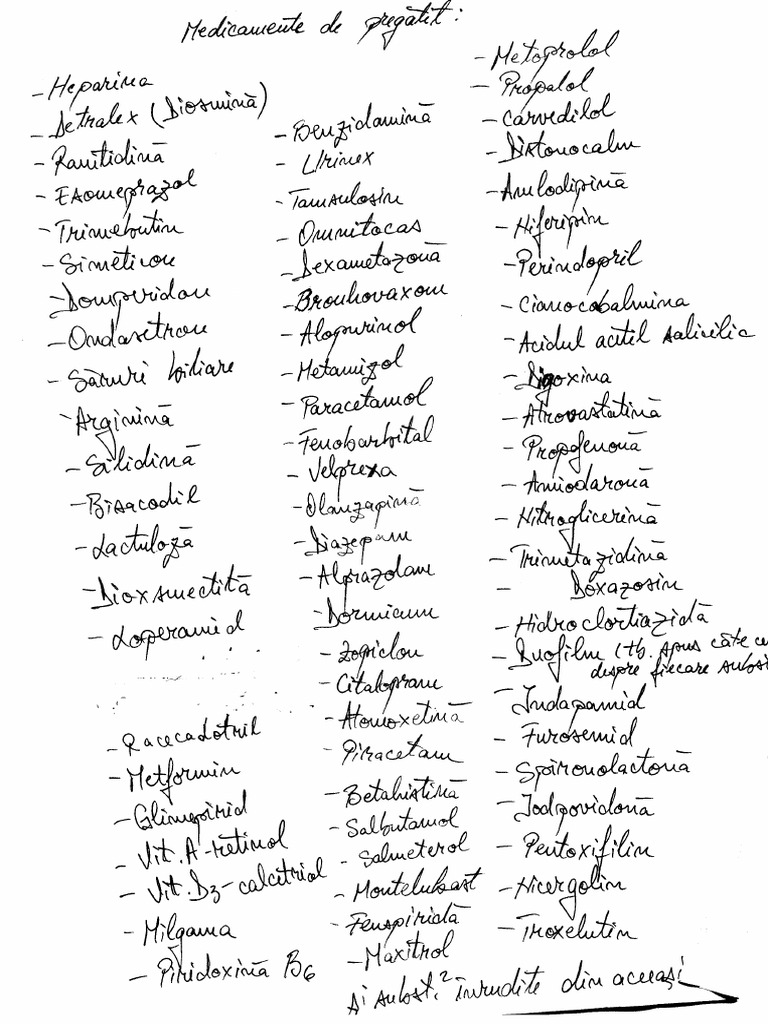 Medicamente de pregătit:
- Heparina
- Detralex (Diosmină)
- Ranitidină
- Esomeprazol
- Trimebutin
- Simeticon
- Domperidon
- Ondasetron
- Săruri biliare
- Arginină
- Silidină
- Bisacodil
- Lactuloză
- Dioxsmectită
- Loperamid
- Racecadotril
- Metformin
- Glimepirid
- Vit. A - retinol
- Vit. D3 - calcitriol
- Milgama
- Piridoxină B6
- Benzidamină
- Urinex
- Tamsulosin
- Omnitocas
- Dexametazonă
- Bronhovaxom
- Alopurinol
- Metamizol
- Paracetamol
- Fenobarbital
- Velprexa
- Olanzapină
- Diazepam
- Alprazolam
- Dormicum
- Zopiclon
- Citalopram
- Atomoxetină
- Piracetam
- Betahistină
- Salbutamol
- Salmeterol
- Montelukast
- Fenspiridă
- Maxitrol
- Metoprolol
- Propalol
- Carvedilol
- Distonocalm
- Amlodipină
- Niferipin
- Perindopril
- Cianocobalmina
- Acidul acitil salicilic
- Digoxina
- Atrovastatină
- Propofenonă
- Amiodaronă
- Nitroglicerină
- Trimetazidină
- Doxazosin
- Hidroclortiazidă
- Duofilm (tb. spus câte ce
despre fiecare subs
- Indapamid
- Furosemid
- Spironolactonă
- Iodpovidonă
- Pentoxifilin
- Nicergolin
- Troxelutin
și subst. înrudite din aceeași